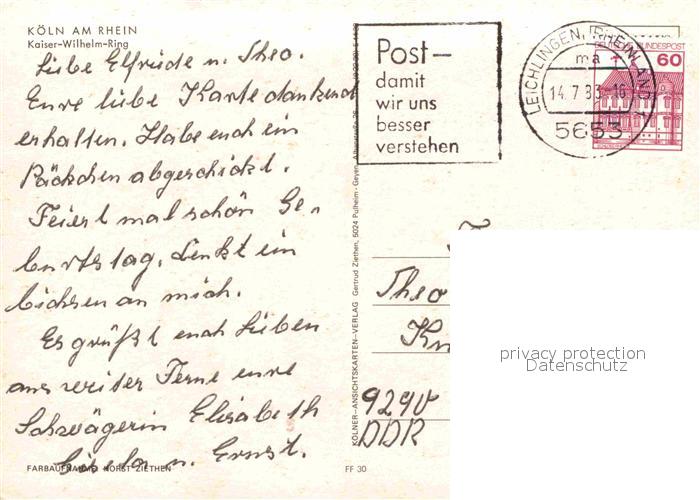 KÖLN AM RHEIN
Kaiser-Wilhelm-Ring
Liebe Elfriede u. Theo.
Eure liebe Karte dankend
erhalten. Habe euch ein
Päckchen abgeschickt.
Feiert mal schön Ge-
burtstag. Denkt ein
bichsen an mich.
Es grüßt euch Lieben
aus weiter Ferne eure
Schwägerin Elisabeth
u. Ernst.
FARBAUFNAHME HORST ZIETHEN
FF 30
KÖLNER-ANSICHTSKARTEN-VERLAG Gertrud Ziethen, 5024 Pulheim-Geyen
Post–
damit
wir uns
besser
verstehen
LEICHLINGEN, RHEINLAND
ma
14.7.83-16
5653
DEUTSCHE BUNDESPOST
60
Theo
Kn
9290
DDR
privacy protection
Datenschutz